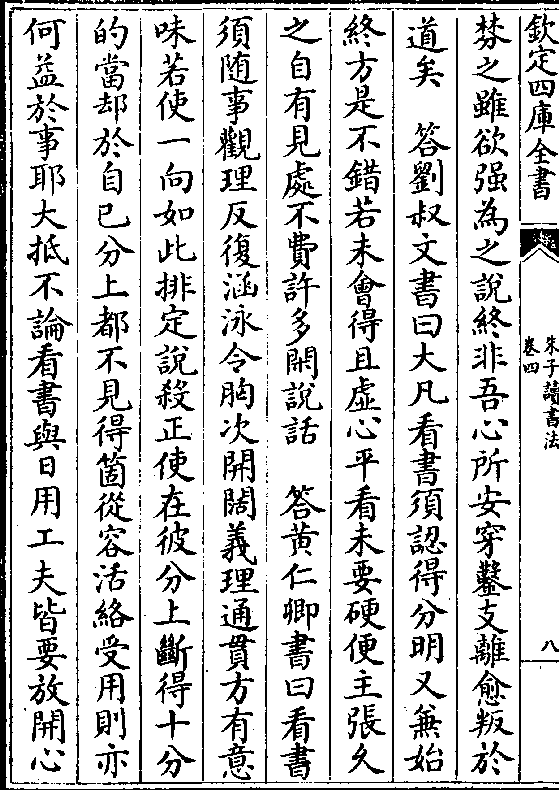 欽定四庫全書
朱子讀書法
卷四
八
棼之雖欲强為之說終非吾心所安穿鑿支離愈叛於
道矣　答劉叔文書曰大凡看書須認得分明又兼始
終方是不錯若未會得且虛心平看未要硬便主張久
之自有見處不費許多閑說話　答黄仁卿書曰看書
須随事觀理反復涵泳令胸次開闊義理通貫方有意
味若使一向如此排定說殺正使在彼分上斷得十分
的當却於自已分上都不見得箇從容活絡受用則亦
何益於事耶大抵不論看書與日用工夫皆要放開心